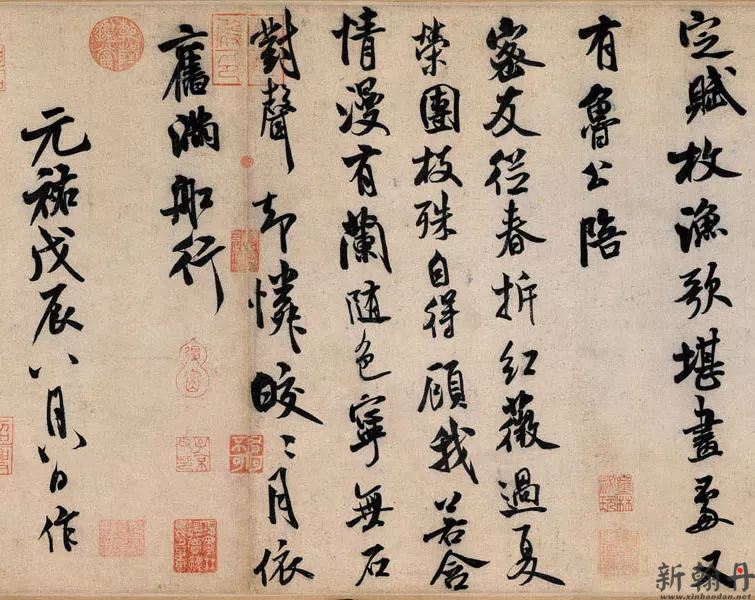 定賦枚漁歌堪畫處又
有魯公陪
密友從春拆紅薇過夏
榮團枝殊自得顧我若含
情漫有蘭隨色寧無石
對聲却憐皎〻月依
舊滿船行
元祐戊辰八月八日作
新翰丹
www.xinhandan.net